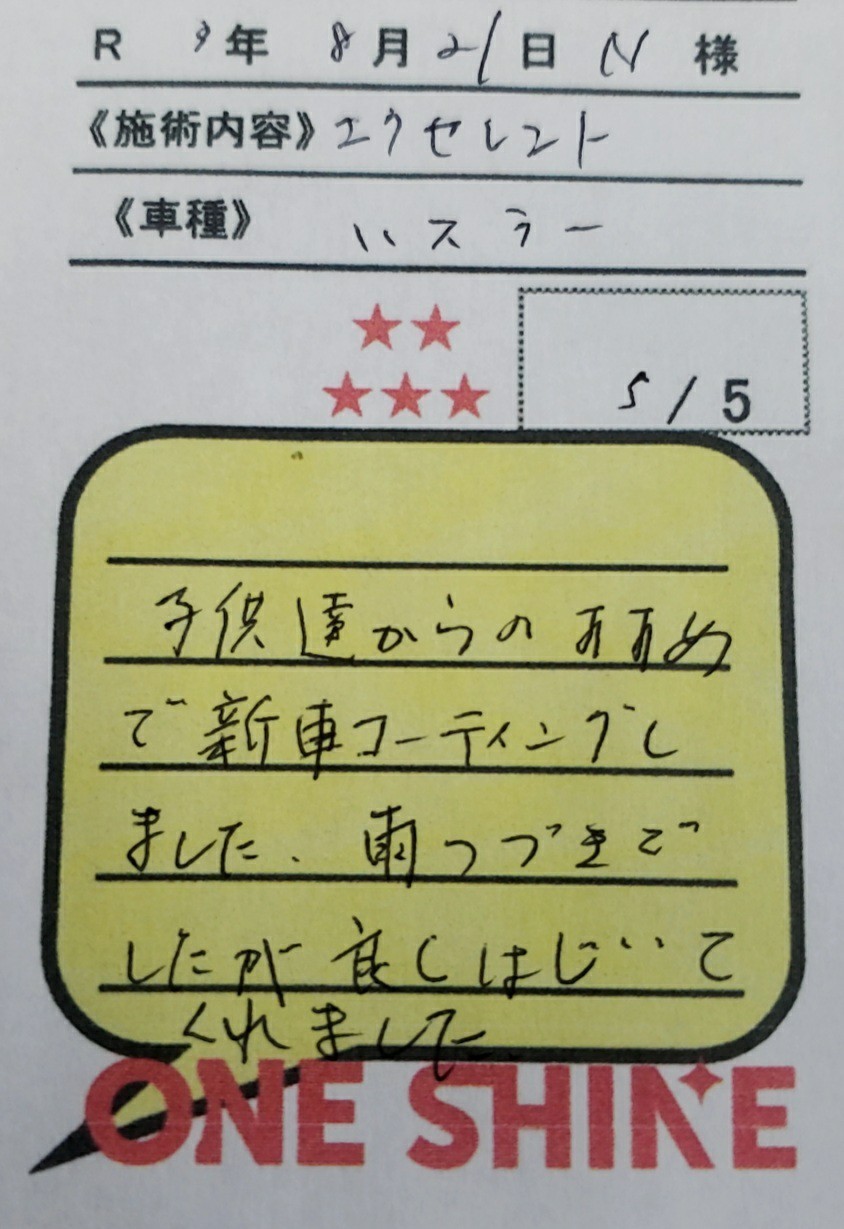 R 3年 8月21日 N 様
《施術内容》エクセレント
《車種》ハスラー
5/5
子供達からのすすめ
で新車コーティングし
ました、雨つづきで
したが良くはじいて
くれました。
ONE SHINE